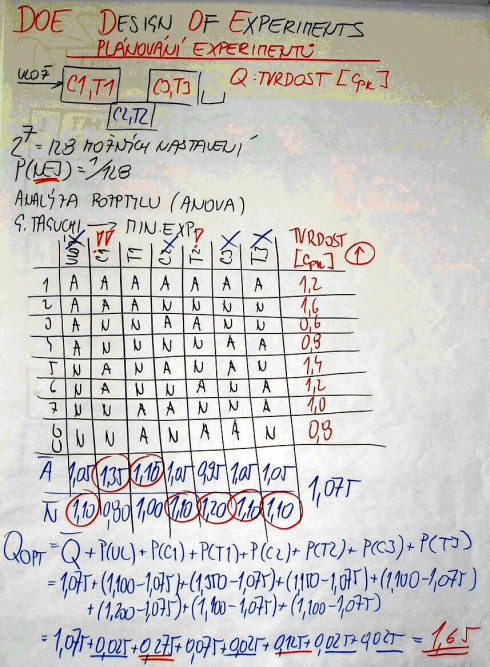 DOE DESIGN OF EXPERIMENTS
PLÁNOVÁNÍ EXPERIMENTŮ
C1,T1 C3,T3 Q: TVRDOST [Cpk]
C2,T2
2^7 = 128 MOŽNÝCH NASTAVENÍ
P(NEJ) = 1/128
ANALÝZA ROZPTYLU (ANOVA)
G. TAGUCHI → MIN. EXP.
C1 T1 C2 T2 C3 T3 TVRDOST [Cpk] ↑
1 A A A A A A A 1,2
2 A A A N N N N 1,6
3 A N N A A N N 0,6
4 A N N N N A A 0,8
5 N A N A N A N 1,4
6 N A N N A N A 1,2
7 N N A A N N A 1,0
8 N N A N A A N 0,8
A 1,05 1,35 1,10 1,05 0,95 1,05 1,05
1,075
N 1,10 0,80 1,00 1,10 1,20 1,10 1,10
QOPT = Q + P(UL) + P(C1) + P(T1) + P(C2) + P(T2) + P(C3) + P(T3)
= 1,075 + (1,100-1,075) + (1,350-1,075) + (1,150-1,075) + (1,100-1,075)
+ (1,200-1,075) + (1,100-1,075) + (1,100-1,075)
= 1,075 + 0,025 + 0,275 + 0,075 + 0,025 + 0,125 + 0,025 + 0,025 = 1,65